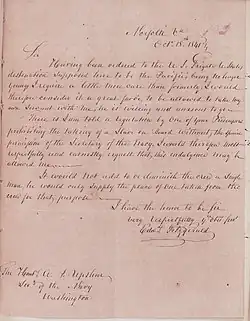 Norfolk Va
Octr 13th 1841
Sir
Having been ordered to the U. S. Frigate
destination supposed here to be the Pacific; being no longer
young I require a little more care than formerly, I would
therefore consider it a great favor, to be allowed to take my
own Servant with me; he is willing and anxious to go.
There is I am told a regulation by one of your Predecessors
prohibiting the taking of a Slave on board without the
permission of the Secretary of the Navy, I would therefore most
respectfully and earnestly request that this indulgence may be
allowed me
It would not add to or diminish the crew a single
man, he would only supply the place of one taken from the
crew for that purpose
I have the honor to be Sir
very respectfully yr Obt Srvt
Edwd Fitzgerald
The Honble A. P. Upshur
Secy of the Navy
Washington